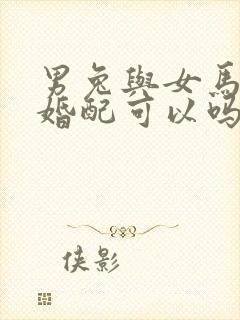 男兔與女馬
婚配可以吗
侠影